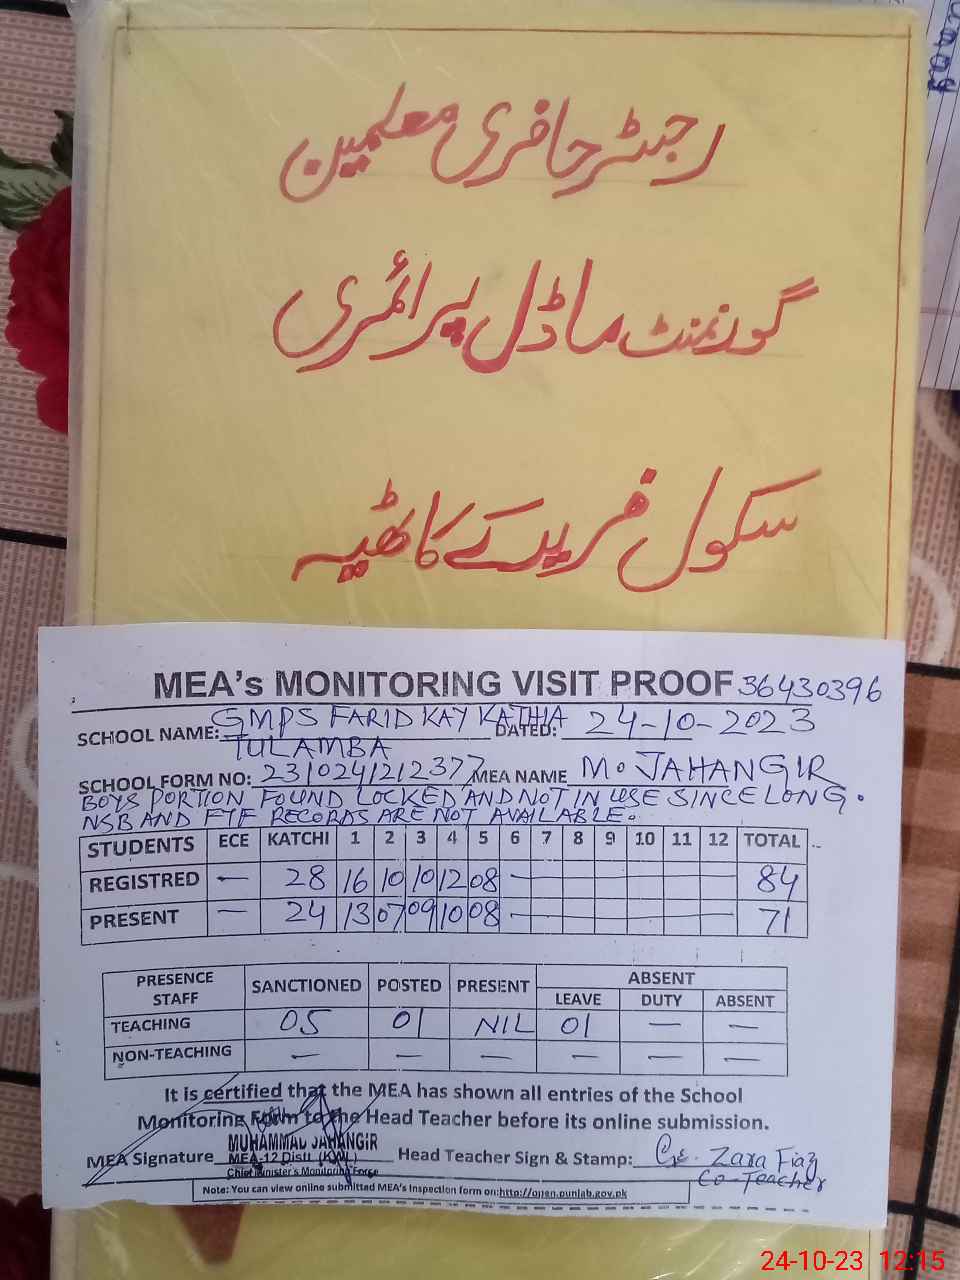 رجسٹر حاضری معلمین
گورنمنٹ ماڈل پرائمری
سکول فرید کے کاٹھیہ
MEA's MONITORING VISIT PROOF 36430396
SCHOOL NAME: GMPS FARID KAY KATHIA DATED: 24-10-2023
TULAMBA
SCHOOL FORM NO: 2310241212377 MEA NAME M. JAHANGIR
BOYS PORTION FOUND LOCKED AND NOT IN USE SINCE LONG.
NSB AND FTF RECORDS ARE NOT AVAILABLE.
STUDENTS ECE KATCHI 1 2 3 4 5 6 7 8 9 10 11 12 TOTAL
REGISTRED — 28 16 10 10 12 08 — 84
PRESENT — 24 13 07 09 10 08 — 71
PRESENCE STAFF SANCTIONED POSTED PRESENT ABSENT
LEAVE DUTY ABSENT
TEACHING 05 01 NIL 01 — —
NON-TEACHING — — — — — —
It is certified that the MEA has shown all entries of the School
Monitoring Form to the Head Teacher before its online submission.
MUHAMMAD JAHANGIR
MEA Signature MEA-12 Distt. (KWL) Head Teacher Sign & Stamp: Zara Fiaz
Chief Minister's Monitoring Force Co-Teacher
Note: You can view online submitted MEA's Inspection form on:http://open.punjab.gov.pk
24-10-23 12:15